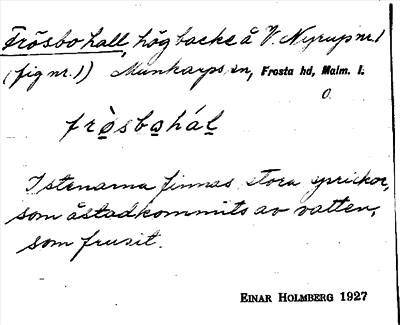 Frösbohall, hög backe å V. Nyrup nr. 1
(fig nr. 1) Munkarps sn, Frosta hd, Malm. l.
O.
frò̤sbo̤hál̤
I stenarna finnas stora sprickor,
som åstadkommits av vatten,
som frusit.
EINAR HOLMBERG 1927